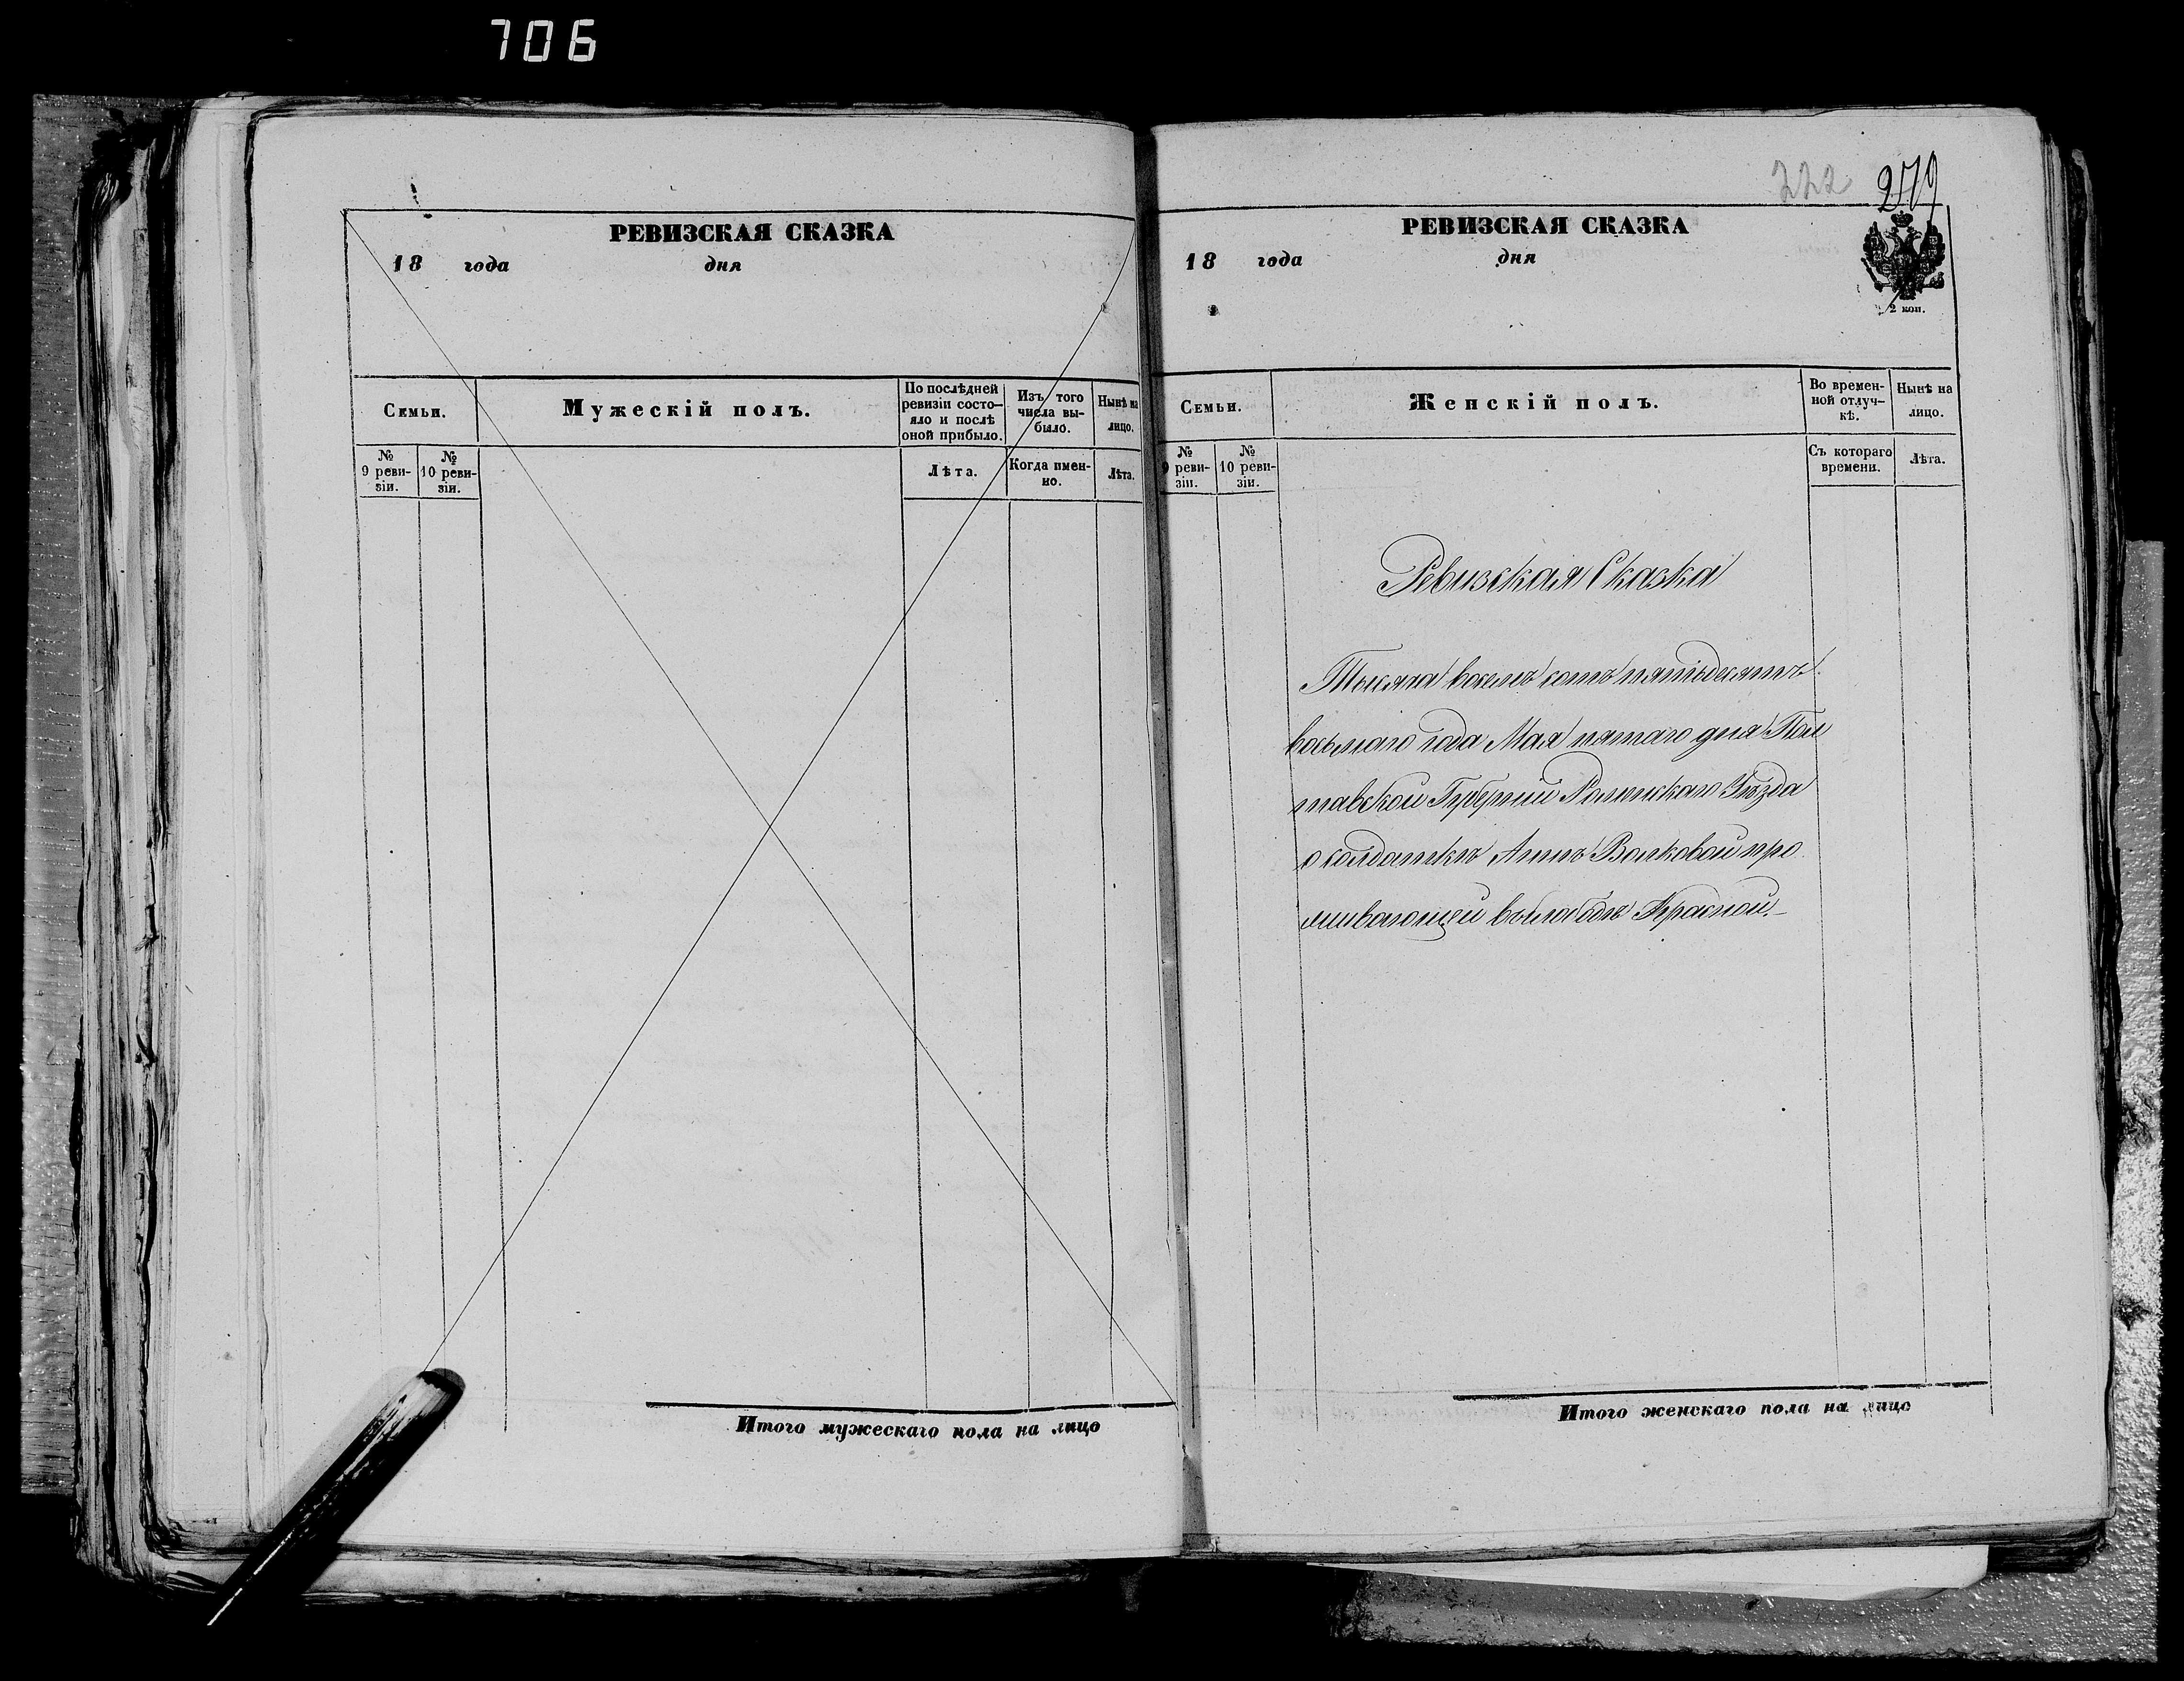 706
РЕВИЗСКАЯ СКАЗКА
18 года дня
Семьи.
Мужескій полъ.
По послѣдней
ревизіи состо-
яло и послѣ
оной прибыло.
Изъ того
числа вы-
было.
Нынѣ на
лицо.
№
9 реви-
зіи.
№
10 реви-
зіи.
Лѣта.
Когда имен-
но.
Лѣта.
Итого мужескаго пола на лицо
222 279
РЕВИЗСКАЯ СКАЗКА
18 года дня
2 коп.
Семьи.
Женскій полъ.
Во времен-
ной отлуч-
кѣ.
Нынѣ на
лицо.
№
9 реви-
зіи.
№
10 реви-
зіи.
Съ котораго
времени.
Лѣта.
Ревизская Сказка
Тысяча восемъ сотъ пятьдесятъ
восьмаго года Мая пятаго дня Пол
тавской Губерніи Роменскаго Уѣзда
о солдаткѣ Аннѣ Волковой про
живающей въ слободѣ Красной.
Итого женскаго пола на лицо